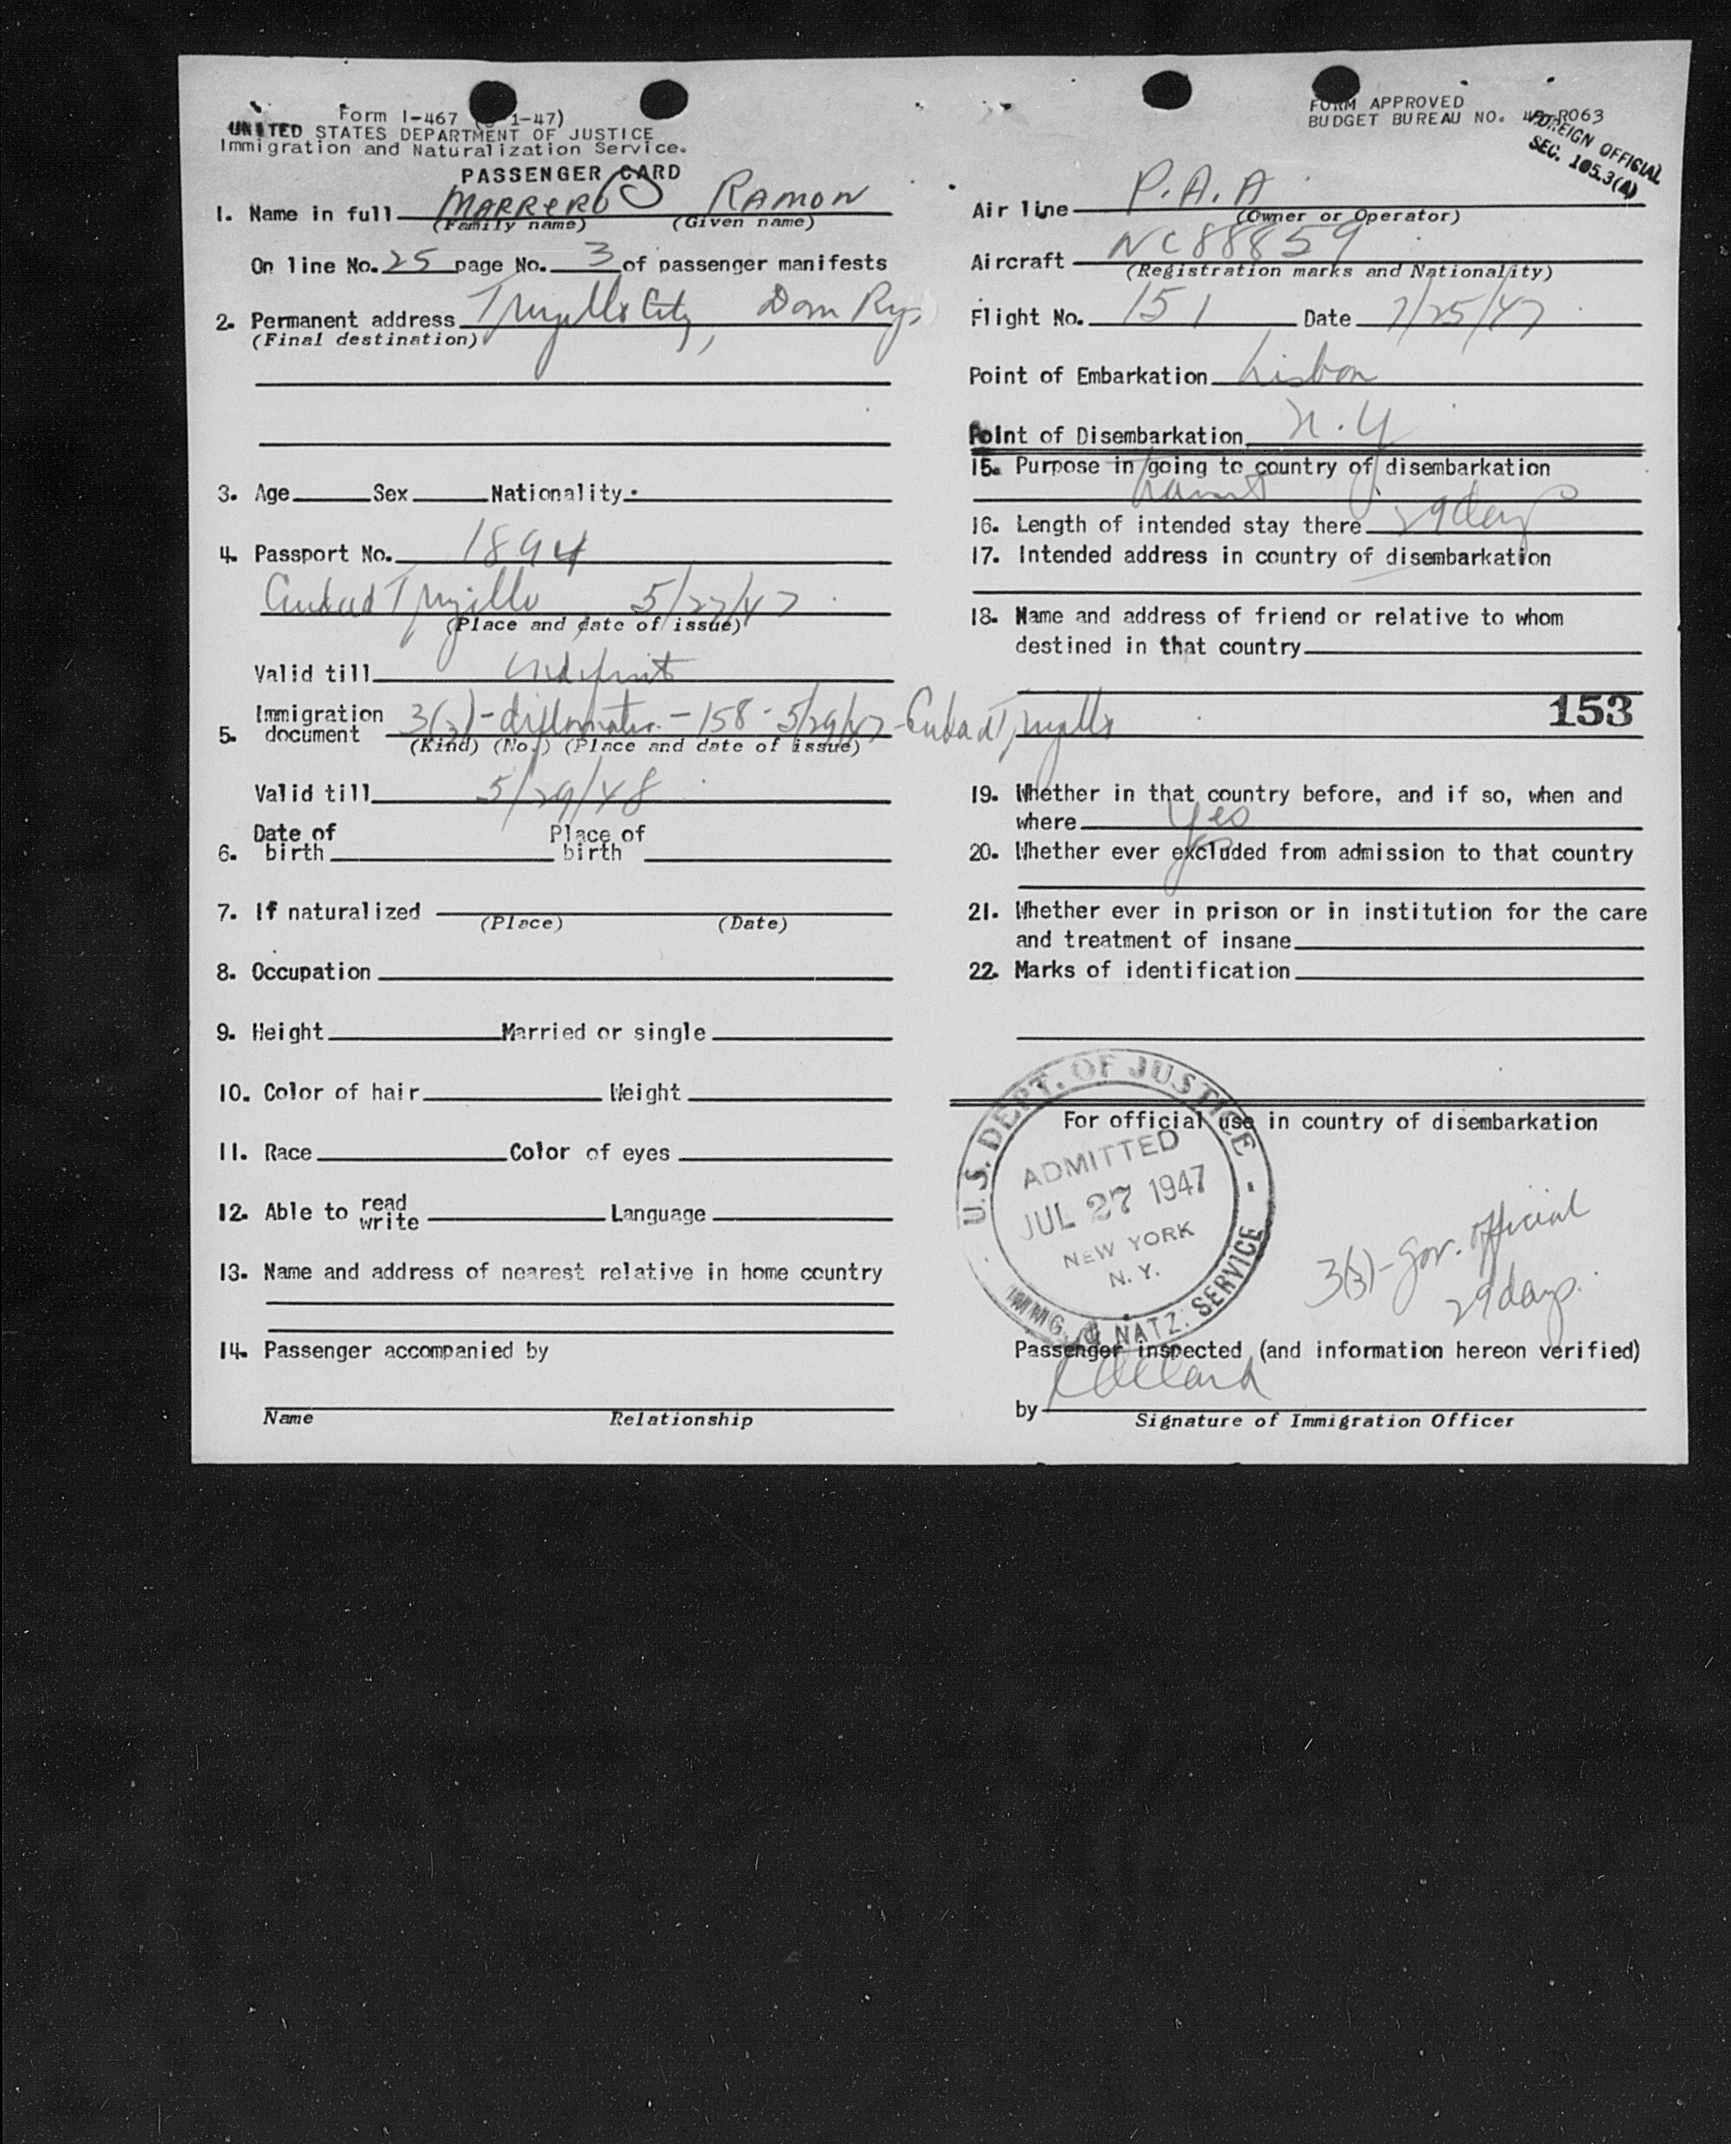 Form I-467 1-47)
UNITED STATES DEPARTMENT OF JUSTICE
Immigration and Naturalization Service.
PASSENGER CARD
1. Name in full MARRERO RAMON
(Family name) (Given name)
On line No. 25 page No. 3 of passenger manifests
2. Permanent address Trujillo City, Dom Rep.
(Final destination)
3. Age Sex Nationality
4. Passport No. 1894
Ciudad Trujillo 5/27/47
(Place and date of issue)
Valid till indefinit
5. Immigration document 3(3)-diplomatic - 158 - 5/29/47 - Ciudad Trujillo
(Kind) (No.) (Place and date of issue)
Valid till 5/29/48
6. Date of birth Place of birth
7. If naturalized
(Place) (Date)
8. Occupation
9. Height Married or single
10. Color of hair Weight
11. Race Color of eyes
12. Able to read write Language
13. Name and address of nearest relative in home country
14. Passenger accompanied by
Name Relationship
FORM APPROVED
BUDGET BUREAU NO. R063
FOREIGN OFFICIAL
SEC. 105.3(A)
Air line P.A.A
(Owner or Operator)
Aircraft NC88859
(Registration marks and Nationality)
Flight No. 151 Date 7/25/47
Point of Embarkation Lisbon
Point of Disembarkation N.Y
15. Purpose in going to country of disembarkation
transit
16. Length of intended stay there 29 days
17. Intended address in country of disembarkation
18. Name and address of friend or relative to whom
destined in that country
153
19. Whether in that country before, and if so, when and
where yes
20. Whether ever excluded from admission to that country
21. Whether ever in prison or in institution for the care
and treatment of insane
22. Marks of identification
For official use in country of disembarkation
U.S. DEPT. OF JUSTICE
ADMITTED
JUL 27 1947
NEW YORK
N. Y.
IMMIG. & NATZ. SERVICE
3(3)-gov. official
29 days.
Passenger inspected (and information hereon verified)
by
Signature of Immigration Officer